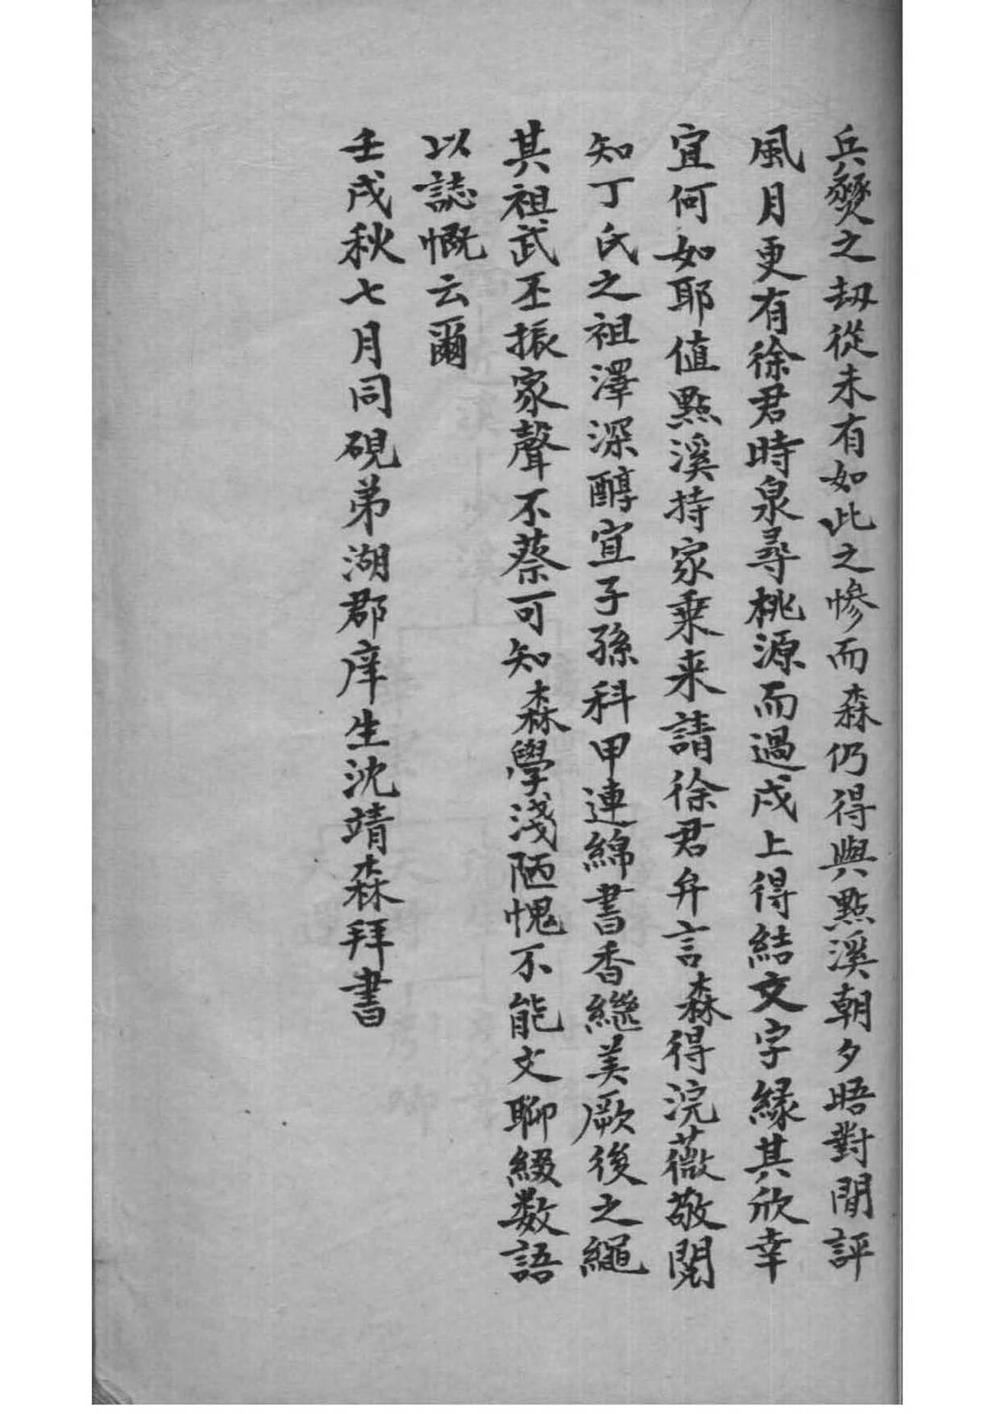 兵燹之刼從未有如此之慘而森仍得與點溪朝夕晤對閒評
風月更有徐君時泉尋桃源而過戍上得結文字緣其欣幸
宜何如耶值點溪持家乗来請徐君弁言森得浣薇敬閱
知丁氏之祖澤深醇宜子孫科甲連綿書香繼美厥後之繩
其祖武丕振家聲不蔡可知森學淺陋愧不能文聊綴数語
以誌慨云爾
壬戌秋七月同硯弟湖郡庠生沈靖森拜書